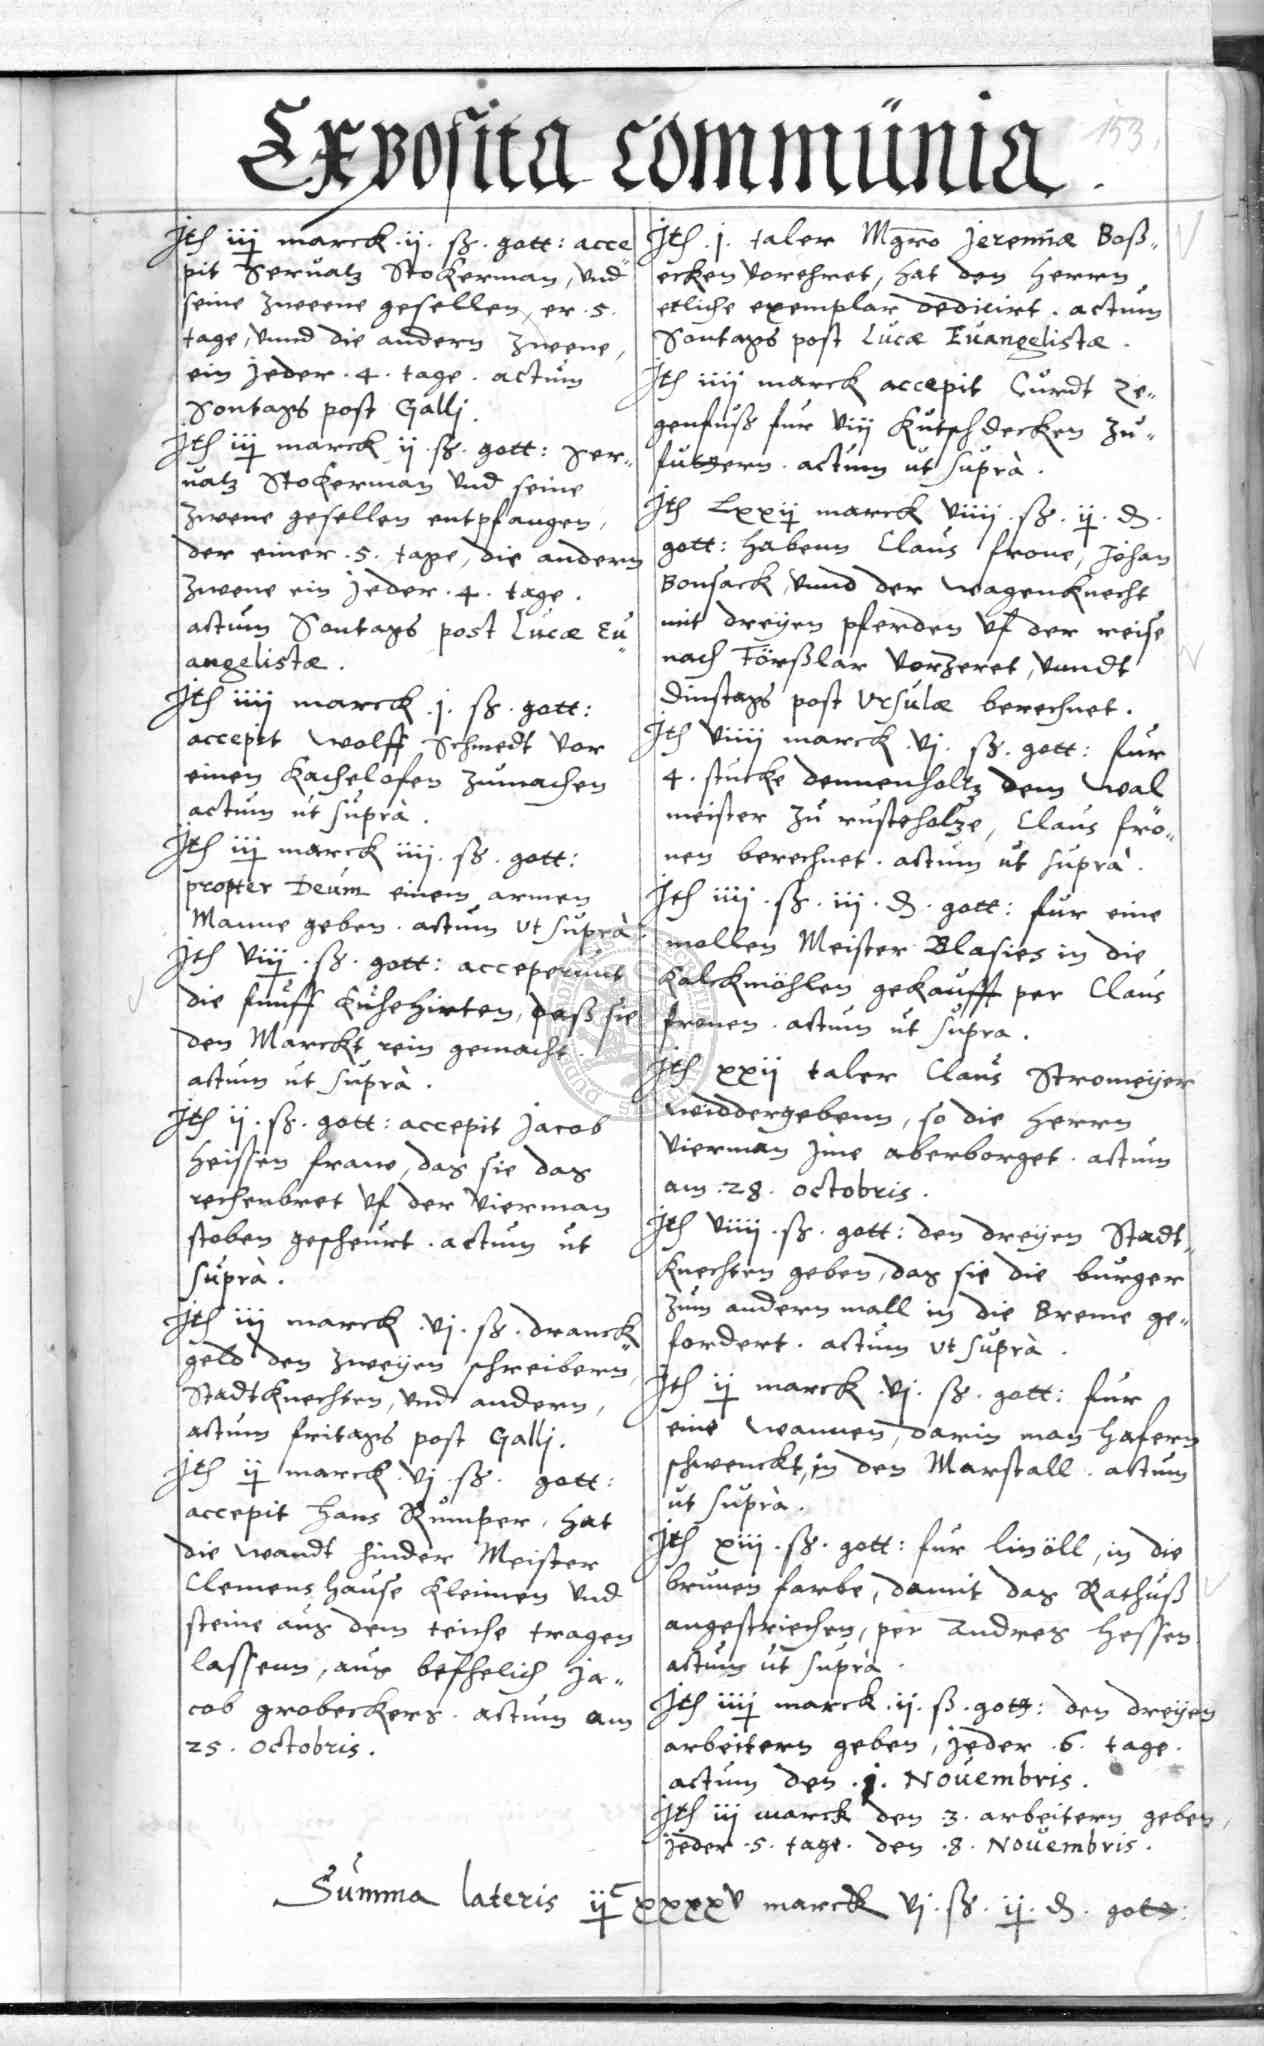 Exposita commünia.
153.
Jtē iij marck .ij. ß. gott: acce
pit Seruatz Stokerman, vnd
seine zweene gesellen, er .5.
tage, vnnd die andern zwene,
ein jeder .4. tage. actum
Sontags post Galli.
Jtē iij marck ij .ß. gott: Ser„
uatz Stokerman vnd seine
zwene gesellen entpfangen,
der einer .5. tage, die andern
zwene ein jeder .4. tage.
actum Sontags post Lucæ Eu„
angelistæ.
Jtē iiij marck .j. ß. gott:
accepit Wolff Schmedt vor
einen Kachelofen zumachen
actum ut suprà.
Jtē iij marck iiij. ß. gott:
propter Deum einem armen
Manne geben. actum vt suprà.
Jtē viij .ß. gott: acceperunt
die funff Kuhehirten, daß sie
den Marckt rein gemacht.
actum ut suprà.
Jtē ij .ß. gott: accepit Jacob
Heissen frawe, das sie das
rechenbret vf der vierman
stoben gescheurt. actum ut
suprà.
Jtē iij marck .vj. ß. dranck
geld den zweyen schreibern,
Stadtknechten, vnd andern,
actum fritags post Galli.
Jtē ij marck .vj .ß. gott:
accepit Hans Rumper, hat
die wandt hinder Meister
Clemens hause kleimen vnd
steine aus dem teiche tragen
lassenn, aus befhelich Ja„
cob grobeckers. actum am
25. Octobris.
Jtē .j. taler Mgro Jeremiæ Boß„
ecken vorehret, hat den Herrn
etliche exemplar dedicirt. actum
Sontags post Lucæ Euangelistæ.
Jtē iiij marck accepit Curdt Ze„
genfuß fur viij Kutschdecken zu„
futtern. actum ut suprà.
Jtē Lxxij marck viiij .ß. ij. ₰.
gott: habenn Claus frone, Johan
Bonsack, vnnd der wagenknecht
mit dreyen pferden vf der reise
nach Förßlar vorzeret, vnndt
dinstags post Ursulæ berechnet.
Jtē viiij marck .vj. ß. gott: fur
4. stucke dennenholtz dem wal
meister zu rusteholtze, Claus frö„
nen berechnet. actum ut suprà.
Jtē iiij .ß. iij. ₰. gott: fur eine
mollen Meister Blasies in die
Kalckmöhlen gekaufft per Claus
fronen. actum ut supra.
Jtē xxij taler Claus Stromeyer
widdergebenn, so die Herrn
vierman jme aberborget. actum
am .28. Octobris.
Jtē viiij .ß. gott: den dreyen Stadt„
knechten geben, das sie die burger
zum andern mall in die Breme ge„
fordert. actum vt suprà.
Jtē ij marck .vj. ß. gott: fur
eine wannen, darin man hafern
schwenckt, in den Marstall. actum
ut suprà.
Jtē xiij .ß. gott: fur linöll, in die
brunen farbe, damit das Rathuß
angestriechen, per Andres Hessen
actum ut suprà.
Jtē iiij marck .ij. ß. gott: den dreyen
arbeitern geben, jeder .6. tage.
actum den .j. Nouembris.
Jtē iij marck den 3. arbeitern geben,
jeder .5. tage. den .8. Nouembris.
Summa lateris ijᶜ xxxxv marck vj. ß. ij. ₰. gott: